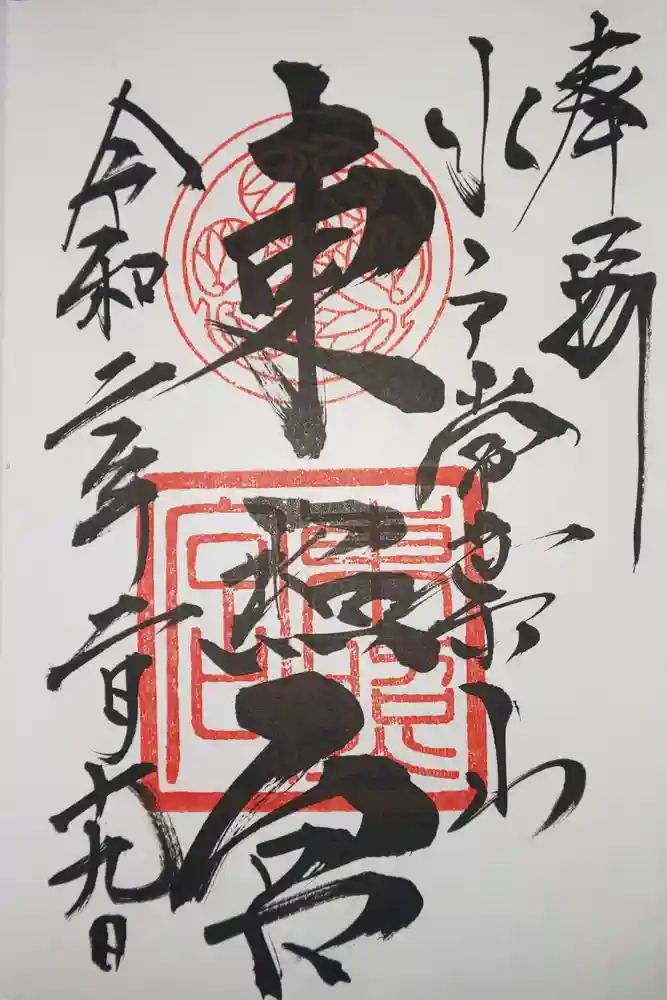 奉拝
水戸常葉山
東照宮
令和二年二月十九日